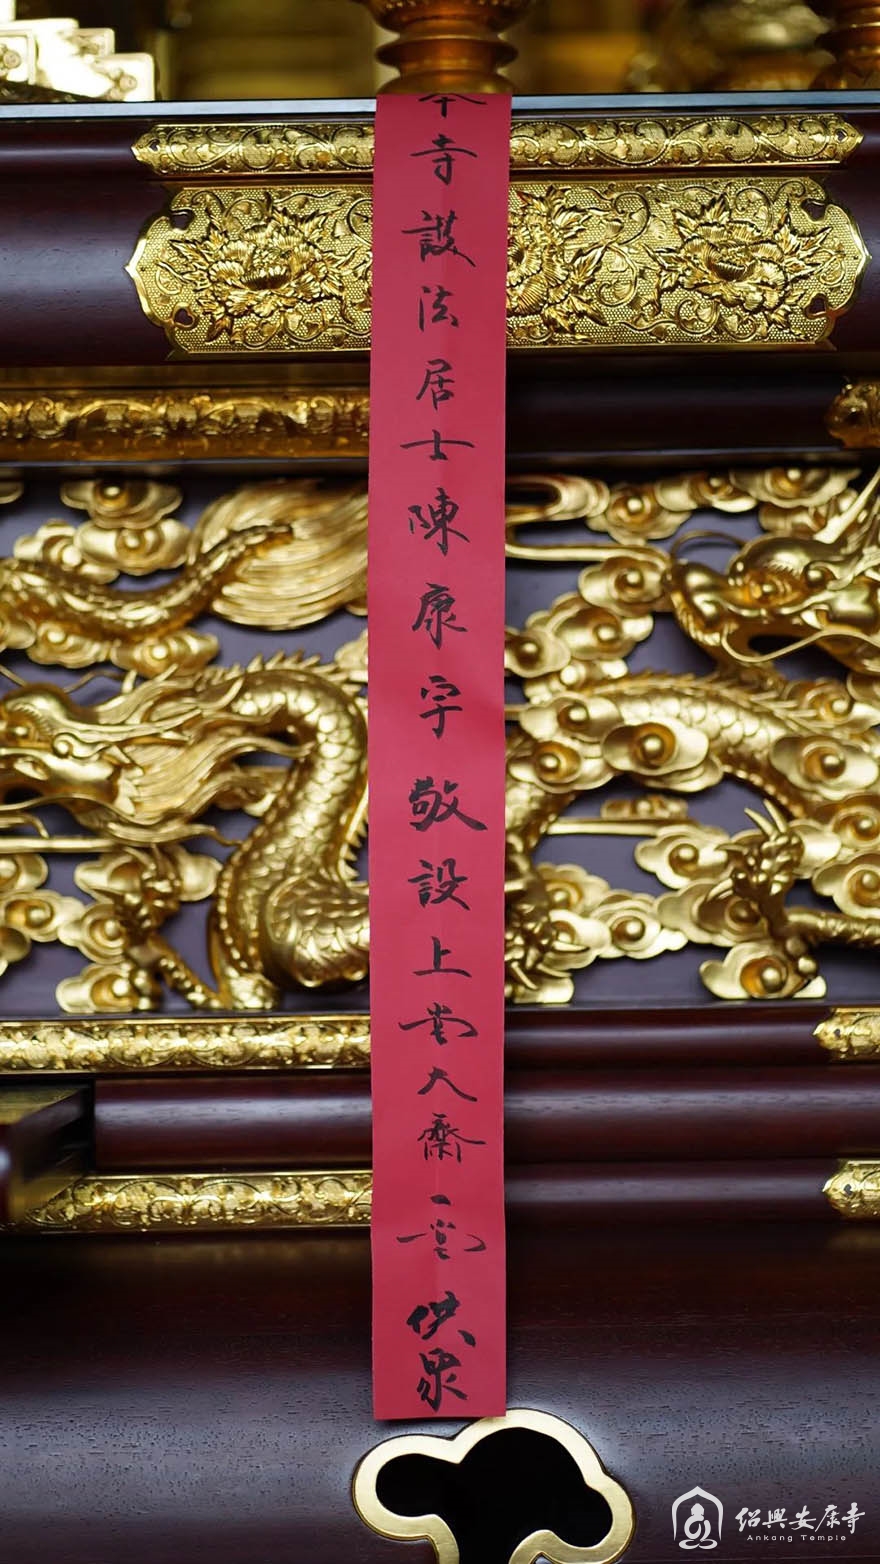 本寺護法居士陳康宇敬設上堂大齋一堂供衆
紹興安康寺
Ankang Temple